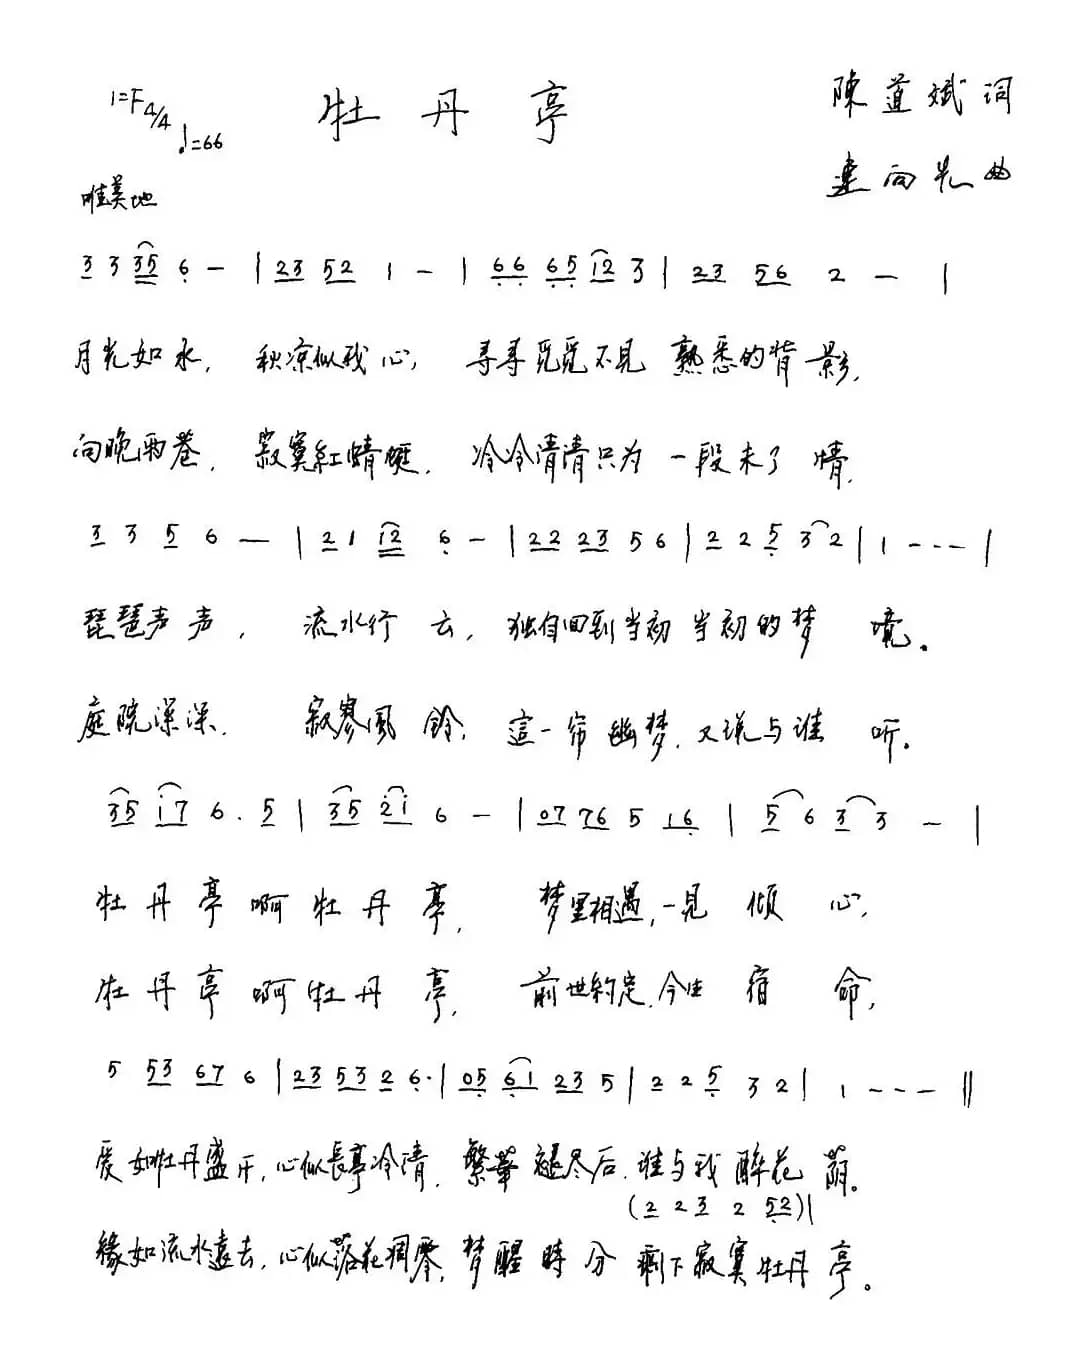 1=F 4/4 牡丹亭 陳道斌词
♩=66 連向先曲
唯美地
3 3 35 6 - | 23 52 1 - | 66 65 12 3 | 23 56 2 - |
月光如水, 秋凉似我心, 寻寻觅觅不见 熟悉的背影,
向晚雨巷, 寂寞红蜻蜓, 冷冷清清只为 一段未了情,
3 3 5 6 — | 2 1 12 6 - | 22 23 5 6 | 2 2 5 3 2 | 1 - - - |
琵琶声声, 流水行云, 独自回到当初 当初的梦境。
庭院深深, 寂寥風鈴, 這一帘幽梦, 又说与谁听。
35 i7 6 . 5 | 35 2i 6 - | 07 76 5 16 | 5 6 3 3 - |
牡丹亭啊牡丹亭, 梦里相遇,一見倾心,
牡丹亭啊牡丹亭, 前世約定,今生宿命,
5 53 67 6 | 23 53 2 6. | 05 61 23 5 | 2 2 5 3 2 | 1 - - - ‖
爱如牡丹盛开,心似長亭冷清, 繁華褪尽后,谁与我醉花荫。
(2 2 3 2 52) |
缘如流水遠去,心似落花凋零, 梦醒時分 剩下寂寞牡丹亭。